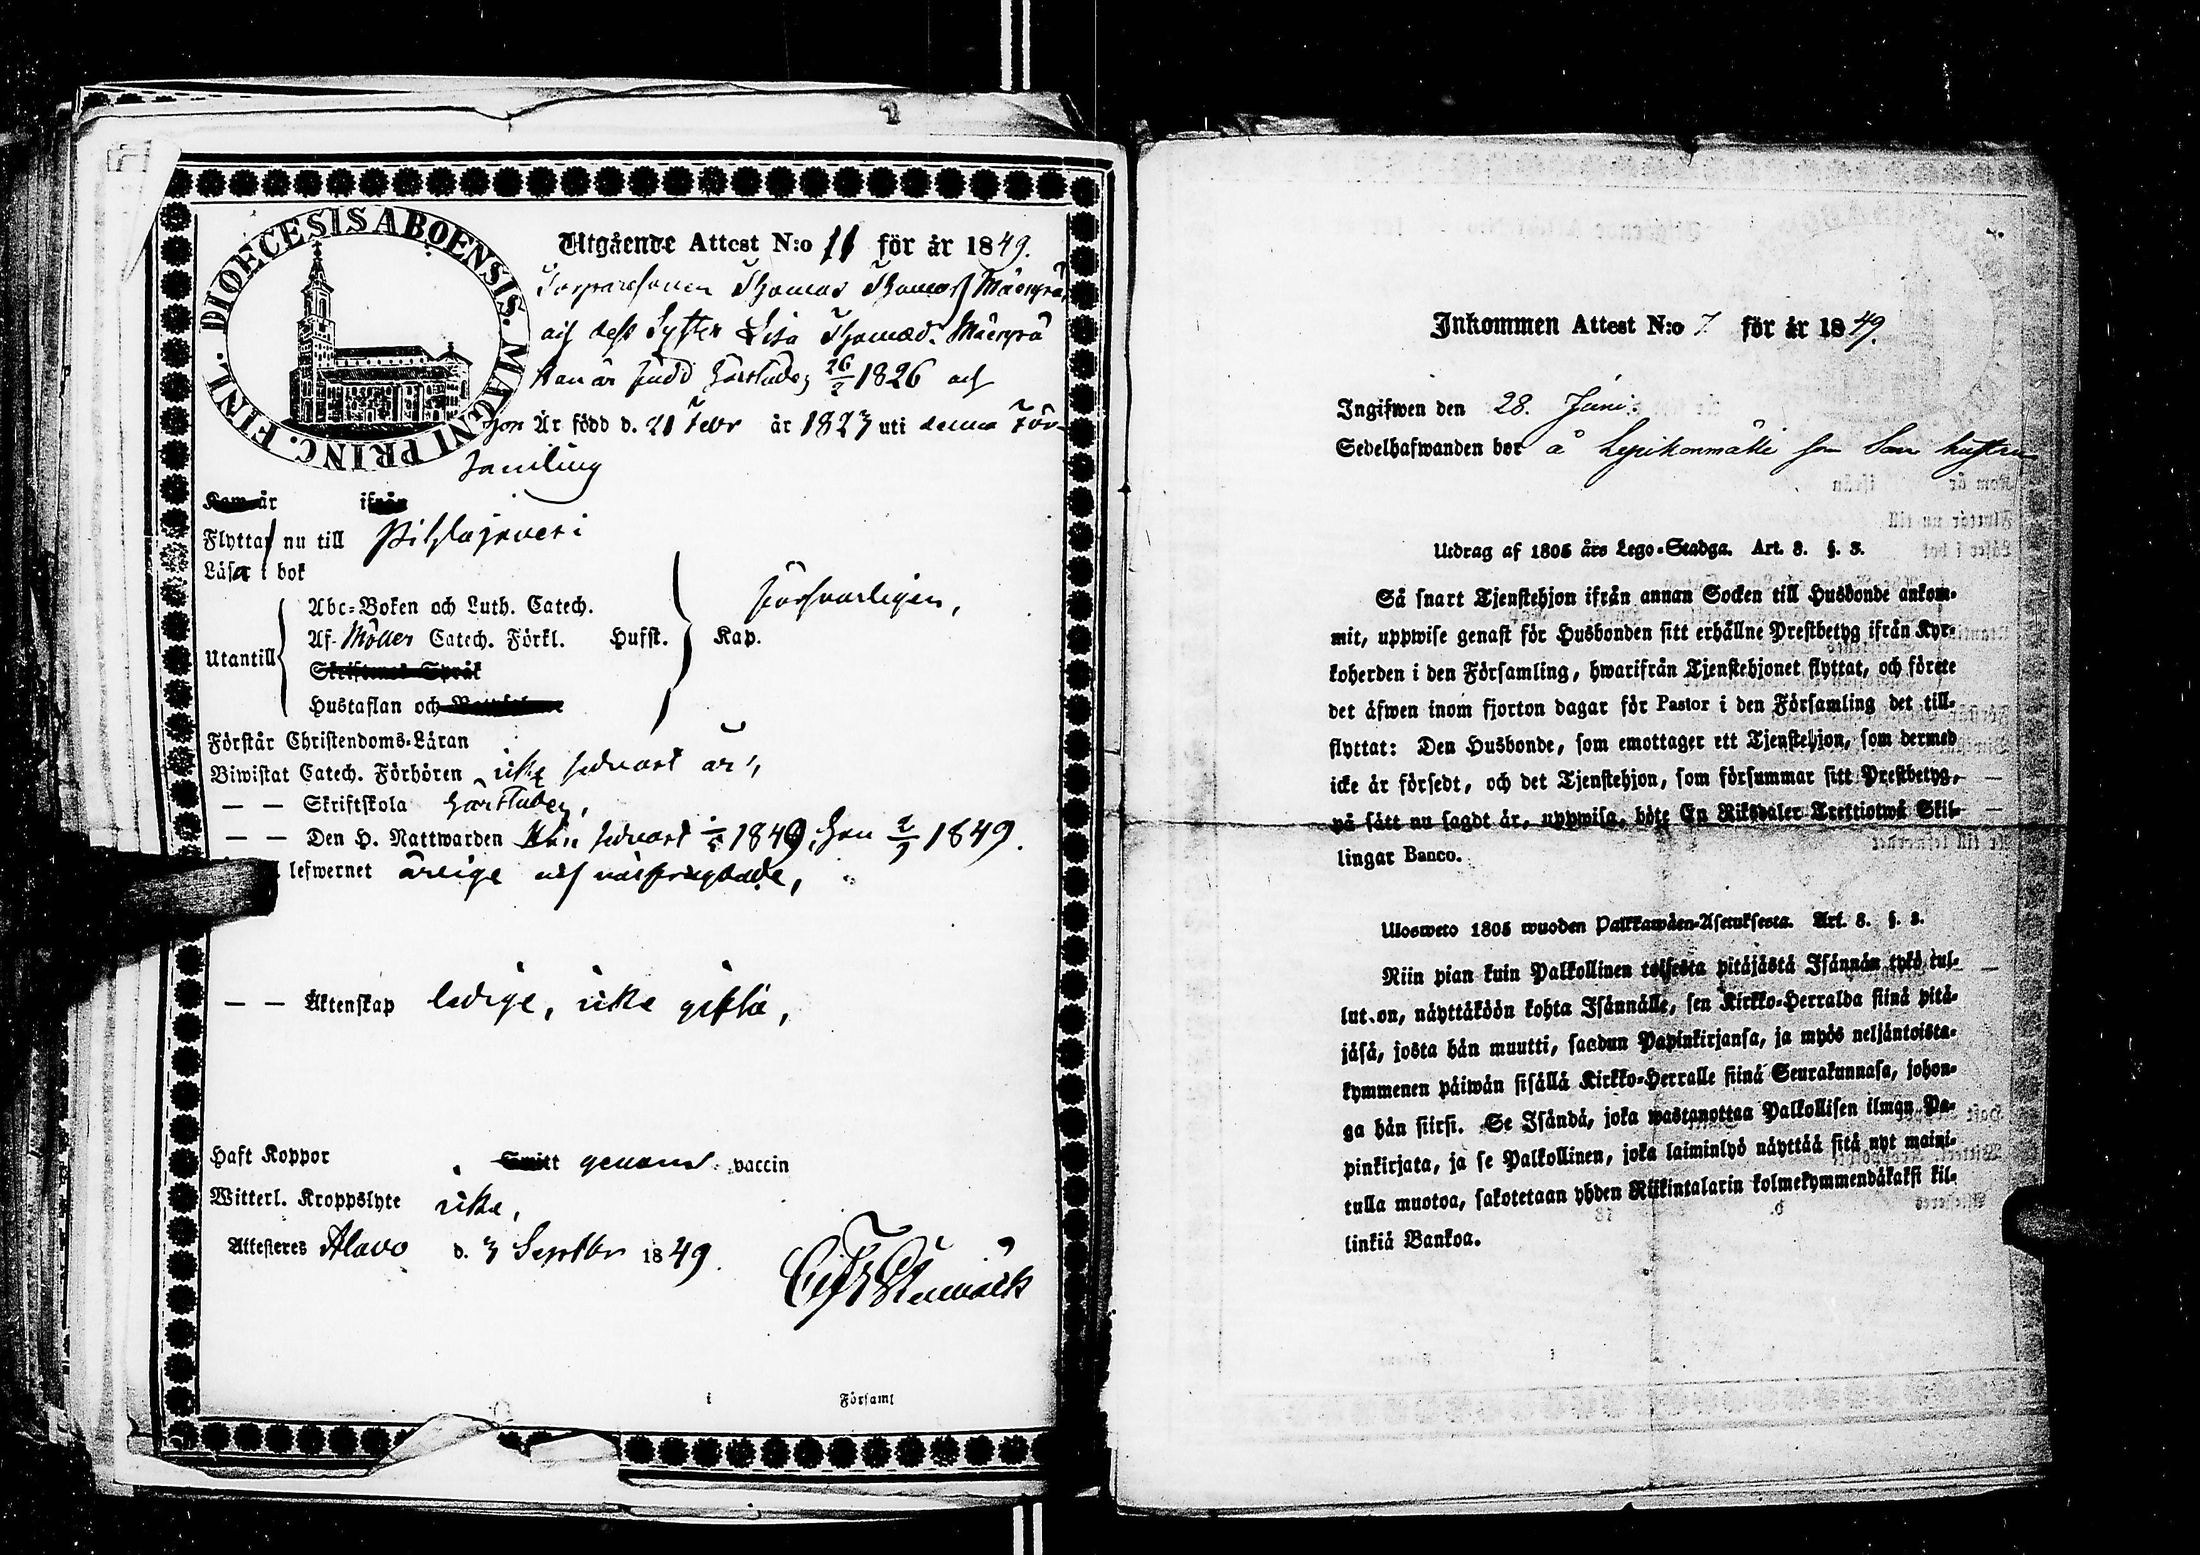 DIOECESIS ABOENSIS. MAGNI PRINC. FINL.
Utgående Attest N:o 11 för år 1849.
Torparesonen Thomas Thomass Mäenpää
och dess Syster Lisa Thomæd. Mäenpää
Han är född härstädes 26/2 1826 och
hon Är född d. 21 Febr år 1823 uti denna För-
samling
Kom är ifrån
Flyttar nu till Pihlajaveci
Läsa i bok försvarligen,
Abc-Boken och Luth. Catech.
Utantill Af Möller Catech. Förkl. Hufst. Kap.
Skriftenes Språk
Hustaflan och
Förstår Christendoms-Läran
Biwistat Catech. Förhören
— — Skriftskola härstädes,
— — Den H. Nattwarden 1849, hon 2/9 1849.
lefwernet ärlige och
— — Äktenskap ledige, icke gifta,
Haft Koppor Smitt genom vaccin
Witterl. Kroppslyte icke,
Attesteres Alavo d. 3 Septbr 1849.
i Församl
Inkommen Attest N:o 7 för år 1849.
Ingifwen den 28. Juni.
Sedelhafwanden bor å Lepikonmäki som
Utdrag af 1805 års Lego-Stadga. Art. 8. §. 3.
Så snart Tjenstehjon ifrån annan Socken till Husbonde ankom-
mit, uppwise genast för Husbonden sitt erhållne Prestbetyg ifrån Kyr-
koherden i den Församling, hwarifrån Tjenstehjonet flyttat, och förete
det äfwen inom fjorton dagar för Pastor i den Församling det till-
flyttat: Den Husbonde, som emottager ett Tjenstehjon, som dermed
icke är försedt, och det Tjenstehjon, som försummar sitt Prestbetyg,
på sätt nu sagdt är, uppwisa, böte En Riksdaler Trettiotwå Skil-
lingar Banco.
Ulosweto 1805 wuoden Palkkawäen-Asetuksesta. Art. 8. §. 3.
Niin pian kuin Palkollinen toisesta pitäjästä Isännän tykö tul-
lut on, näyttäköön kohta Isännälle, sen Kirkko-Herralda siinä pitä-
jäsä, josta hän muutti, saadun Papinkirjansa, ja myös neljäntoista-
kymmenen päiwän sisällä Kirkko-Herralle siinä Seurakunnasa, johon-
ga hän siirsi. Se Isändä, joka wastanottaa Palkollisen ilman Pa-
pinkirjata, ja se Palkollinen, joka laiminlyö näyttää sitä nyt maini-
tulla muotoa, sakotetaan yhden Riikintalarin kolmekymmendäkaksi kil-
linkiä Bankoa.